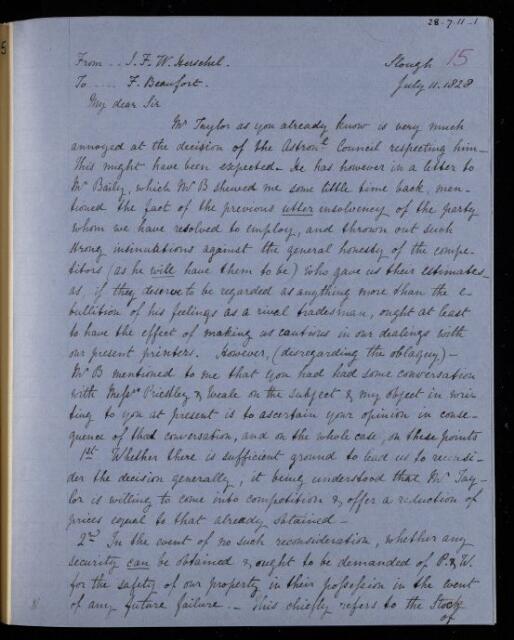 28-7-11-1
15
From .. J. F. W. Herschel.
Slough
To .... F. Beaufort.
July 11. 1828
My dear Sir
Mr Taylor as you already know is very much
annoyed at the decision of the Astronl Council respecting him—
This might have been expected— He has however in a letter to
Mr Baily, which Mr B shewed me some little time back, men-
tioned the fact of the previous utter insolvency of the party
whom we have resolved to employ, and thrown out such
strong insinuations against the general honesty of the compe-
titors (as he will have them to be) who gave us their estimates—
as, if they deserve to be regarded as anything more than the e-
bullition of his feelings as a rival tradesman, ought at least
to have the effect of making us cautious in our dealings with
our present printers. However, (disregarding the obloquy)—
Mr B mentioned to me that you had had some conversation
with Messrs Priestley & Weale on the subject & my object in wri-
ting to you at present is to ascertain your opinion in conse-
quence of that conversation, and on the whole case, on these points
1st Whether there is sufficient ground to lead us to reconsi-
der the decision generally, it being understood that Mr Tay-
lor is willing to come into competition & offer a reduction of
prices equal to that already obtained—
2nd In the event of no such reconsideration, whether any
security can be obtained & ought to be demanded of P. & W.
for the safety of our property in their possession in the event
of any future failure. — This chiefly refers to the Stock
of